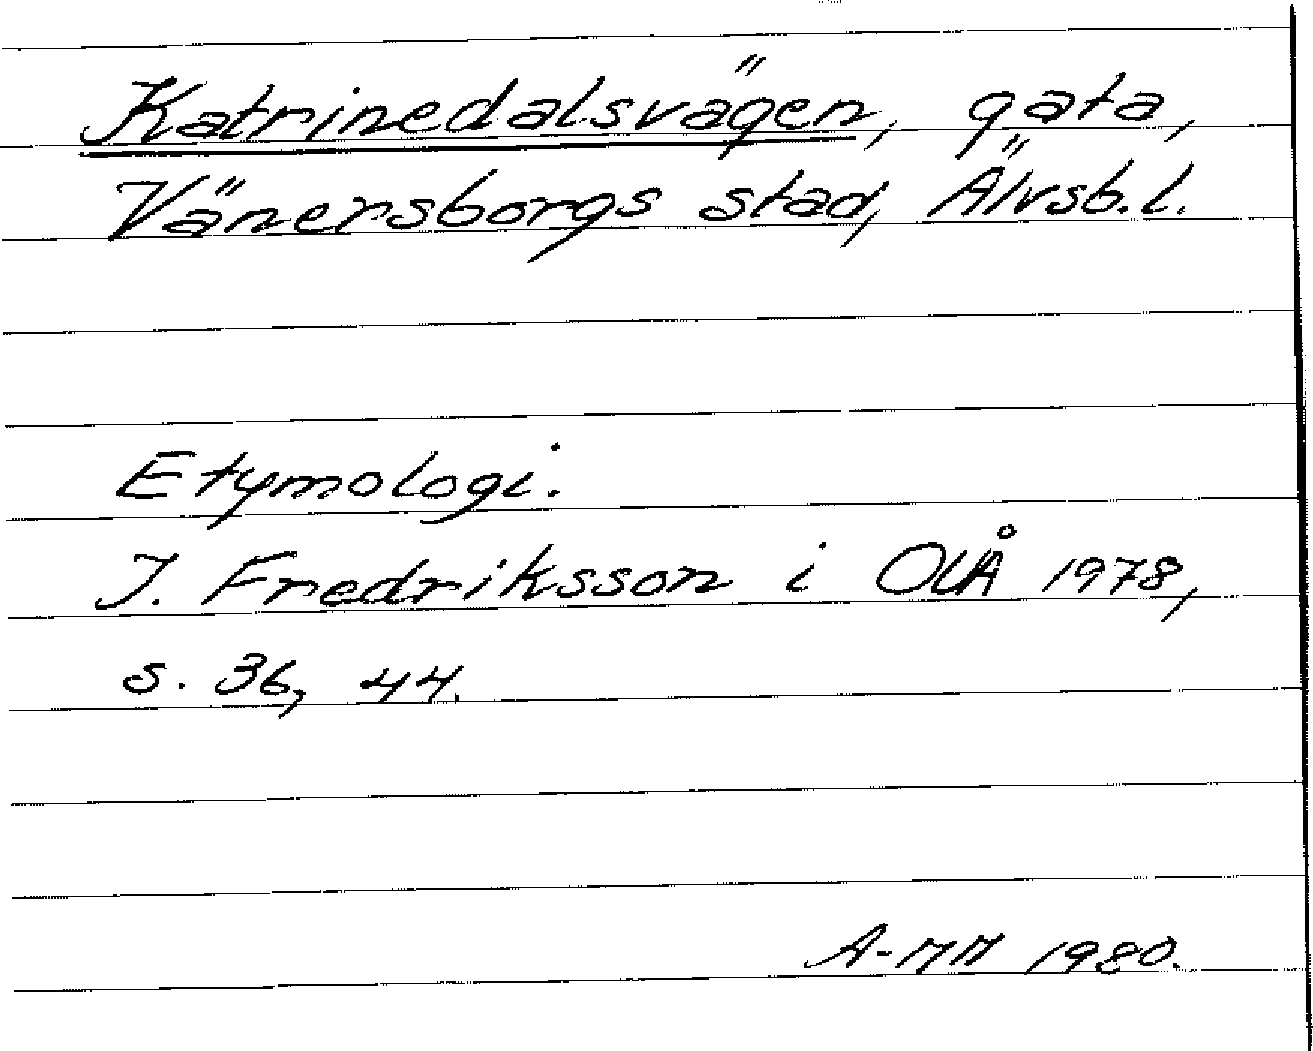 Katrinedalsvägen, gata,
Vänersborgs stad, Älvsb.l.
Etymologi.
I. Fredriksson i OUÅ 1978,
s. 36, 44.
A-MM 1980.